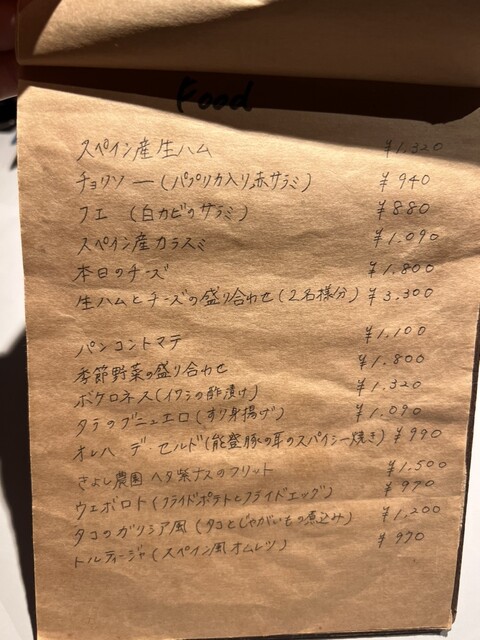 Food
スペイン産生ハム ¥1,320
チョリソー(パプリカ入り赤サラミ) ¥940
フエ (白カビのサラミ) ¥880
スペイン産カラスミ ¥1,090
本日のチーズ ¥1,800
生ハムとチーズの盛り合わせ(2名様分) ¥3,300
パンコントマテ ¥1,100
季節野菜の盛り合わせ ¥1,800
ボケロネス(イワシの酢漬け) ¥1,320
タラのブニュエロ(すり身揚げ) ¥1,090
オレハ デ・セルド(能登豚の耳のスパイシー焼き) ¥990
きよし農園 ヘタ紫ナスのフリット ¥1,500
ウェボロト(フライドポテトとフライドエッグ) ¥970
タコのガリシア風(タコとじゃがいもの煮込み) ¥1,200
トルティージャ(スペイン風オムレツ) ¥970